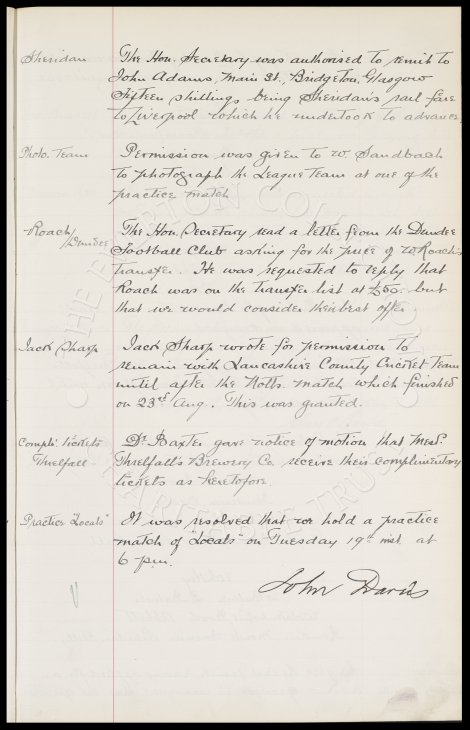 Sheridan
The Hon. Secretary was authorised to remit to
John Adams, Main St., Bridgeton, Glasgow
Fifteen shillings being Sheridan's rail fare
to Liverpool which he undertook to advance.
Photo. Team
Permission was given to W. Sandbach
to photograph the League Team at one of the
practice match
Roach/Dundee
The Hon. Secretary read a letter from the Dundee
Football Club asking for the price of W Roach's
transfer. He was requested to reply that
Roach was on the transfer list at £50. but
that we would consider their best offer.
Jack Sharp
Jack Sharp wrote for permission to
remain with Lancashire County Cricket Team
until after the Notts. match which finished
on 23rd Aug. This was granted.
Compl. tickets
Threlfall
Dr. Baxter gave notice of motion that Messrs.
Threlfall's Brewery Co. receive their complimentary
tickets as heretofore.
Practice "Locals"
It was resolved that we hold a practice
match of "Locals" on Tuesday 19th inst. at
6 p.m.
John Davis
THE EVERTON COLLECTION
CHARITABLE TRUST